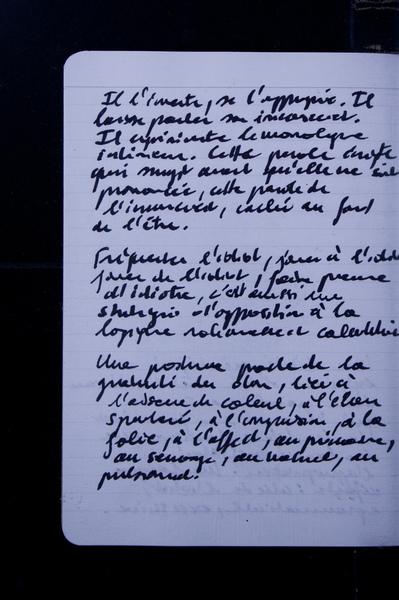 Il l'invente, se l'approprie. Il
laisse parler son inconscient.
Il expérimente le monologue
intérieur. Cette parole
qui surgit avant qu'elle ne soit
prononcée, cette parole de
l'inconscient, cachée au fond
de l'être.
Fréquenter l'idiot, jouer à l'idiot
jouer de l'idiot, faire preuve
d'idiotie, c'est aussi une
stratégie d'opposition à la
logique rationnelle et calculatrice
Une posture proche de la
gratuité du don, liée à
l'absence de calcul, à l'élan
spontané, à l'impulsion, à la
folie, à l'affect, au primaire,
au sauvage, au naturel, au
pulsionnel.